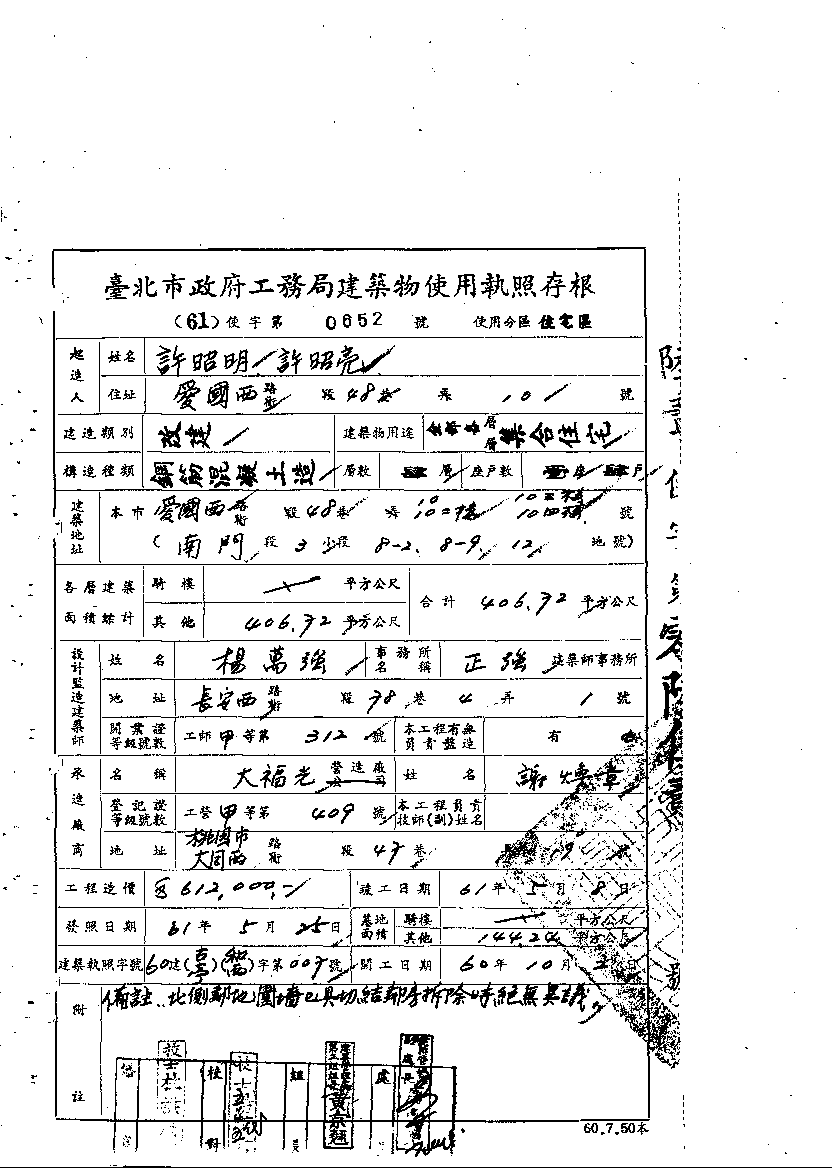 臺北市政府工務局建築物使用執照存根
(61)使字第 0652 號 使用分區 住宅區
起造人 姓名 許昭明 許昭亮
住址 愛國西路 段 48巷 弄 10 號
建造類別 改建 建築物用途 層 集合住宅
構造種類 鋼筋混凝土造 層數 層 座戶數 座 戶
建築地址 本市 愛國西路 段 48巷 弄 號
(南門 段 3 小段 8-2、8-9、12 地號)
各層建築面積總計 騎樓 平方公尺 合計 406.72 平方公尺
其他 406.72 平方公尺
設計監造建築師 姓名 楊萬強 事務所名稱 正強 建築師事務所
地址 長安西路 段 78 巷 4 弄 1 號
開業證等級號數 工師甲等第 312 號 本工程有無負責監造 有
承造廠商 名稱 大福光 營造廠 姓名 謝
登記證等級號數 工營甲等第 409 號 本工程負責技師(副)姓名
地址 桃園市大同西路 段 47 巷 19 號
工程造價 612,000,- 竣工日期 61年5月8日
發照日期 61年5月25日 基地面積 騎樓 平方公尺
其他 144.24 平方公尺
建築執照字號 60建 字第 號 開工日期 60年10月 日
附註
備註: 北側鄰地圍墻已具切結鄰房拆除時絕無異議
校對 組長 處
60.7.50本